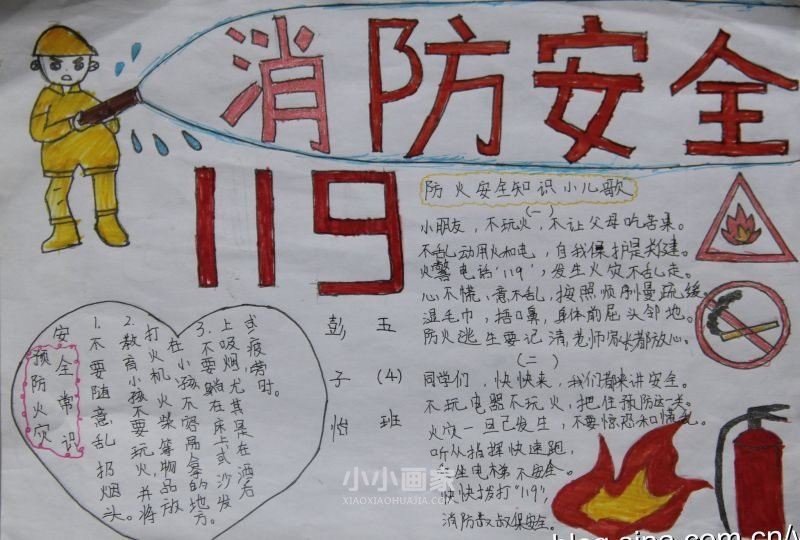 消防安全
119
防火安全知识小儿歌
(一)
小朋友，不玩火，不让父母吃苦果。
不乱动用火和电，自我保护是关键。
火警电话"119"，发生火灾不乱走。
心不慌，意不乱，按照顺序慢疏缓。
湿毛巾，捂口鼻，身体前屈头邻地。
防火逃生要记清，老师家长都放心。
(二)
同学们，快快来，我们都来讲安全。
不玩电器不玩火，把住预防这一关。
火灾一旦已发生，不要惊恐和慌乱。
听从指挥快速跑，
坐电梯不安全。
快快拨打"119"，
消防叔叔保安全。
彭子怡
五(4)班
安全常识
预防火灾
1.不要随意乱扔烟头。
2.教育小孩不要玩火，并将
打火机火柴等物品放
在小孩不容易拿的地方。
3.不要躺在床上或沙发
上吸烟，尤其是在酒后
或疲劳时。
小小画家
XIAOXIAOHUAJIA.COM
blog.sina.com.cn/